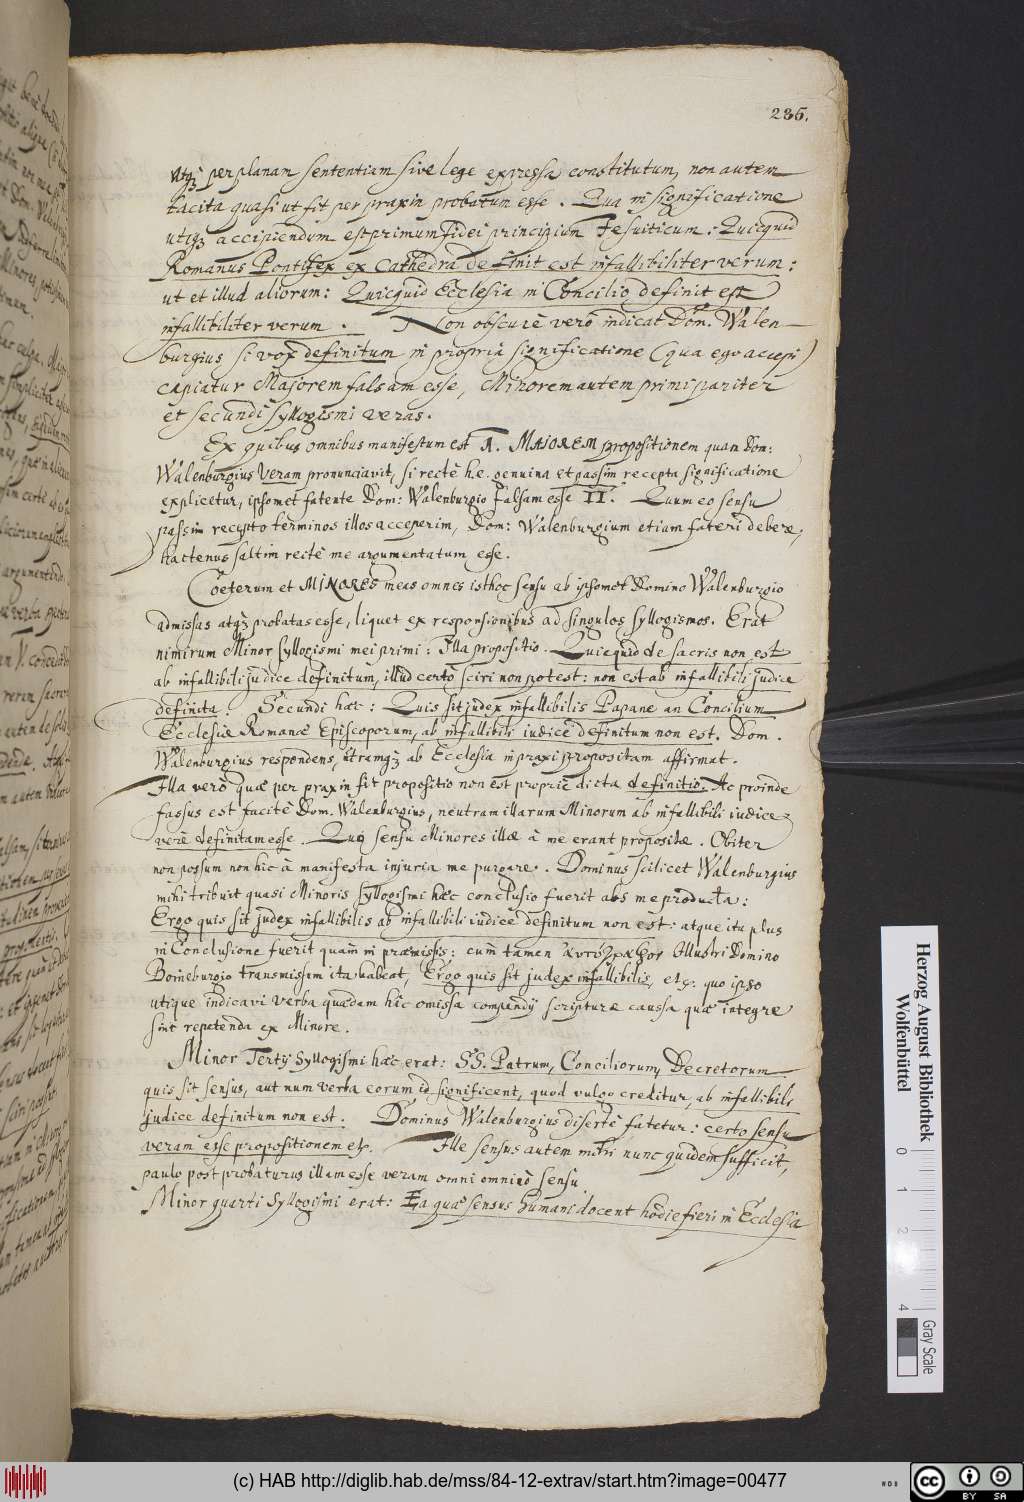 235.
utqꝫ per planam sententiam sive lege expressa constitutum, non autem
tacita quasi ut fit per praxin probatum esse. Qua in significatione
utiqꝫ accipiendum est primum fidei principium Jesuiticum: Quicquid
Romanus Pontifex ex Cathedra definit est infallibiliter verum:
ut et illud aliorum: Quicquid Ecclesia in Concilio definit est
infallibiliter verum. Non obscurè verò indicat Dom. Walen-
burgius si vox definitum in propria significatione (qua ego accepi)
capiatur Majorem falsam esse, Minorem autem primi pariter
et secundi syllogismi veras.
Ex quibus omnibus manifestum est 1. MAIOREM propositionem quam Dom:
Walenburgius Veram pronunciavit, si rectè h.e. genuina et passim recepta significatione
explicetur, ipsomet fatente Dom: Walenburgio Falsam esse II. Quum eo sensu
passim recepto terminos illos acceperim, Dom: Walenburgium etiam fateri debere,
hactenus saltim rectè me argumentatum esse.
Coeterum et MINORES meas omnes isthoc sensu ab ipsomet Domino Walenburgio
admissas atqꝫ probatas esse, liquet ex responsionibus ad singulos syllogismos. Erat
nimirum Minor syllogismi mei primi: Illa propositio. Quicquid de sacris non est
ab infallibili judice definitum, illud certò sciri non potest: non est ab infallibili judice
definita. Secundi haec: Quis sit judex infallibilis Papane an Concilium
Ecclesiae Romanae Episcoporum, ab infallibili iudice definitum non est. Dom.
Walenburgius respondens, utramqꝫ ab Ecclesia in praxi propositam affirmat.
Illa verò quae per praxin fit propositio non est propriè dicta definitio. Ac proinde
fassus est tacitè Dom. Walenburgius, neutram illarum Minorum ab infallibili iudice
verè definitam esse. Quo sensu Minores illae à me erant propositae. Obiter
non possum non hic à manifesta injuria me purgare. Dominus scilicet Walenburgius
mihi tribuit quasi Minoris syllogismi haec conclusio fuerit abs me producta:
Ergo quis sit judex infallibilis ab infallibili iudice definitum non est: atque ita plus
in Conclusione fuerit quam in praemissis: cum tamen ἀυτόγραφον Illustri Domino
Boineburgio transmissum ita habeat, Ergo quis sit judex infallibilis, etc. quo ipso
utique indicavi verba quaedam hîc omissa compendij scripturae caussa quae integre
sint repetenda ex Minore.
Minor Tertij Syllogismi haec erat: SS. Patrum, Conciliorum, Decretorum
quis sit sensus, aut num verba eorum id significent, quod vulgo creditur, ab infallibili
judice definitum non est. Dominus Walenburgius disertè fatetur: certo sensu
veram esse propositionem etc. Ille sensus autem mihi nunc quidem sufficit,
paulo post probaturus illam esse veram omni omnino sensu
Minor quarti Syllogismi erat: Ea quae sensus humani docent hodie fieri in Ecclesia
Herzog August Bibliothek
Wolfenbüttel
0 1 2 4
Gray Scale
(c) HAB http://diglib.hab.de/mss/84-12-extrav/start.htm?image=00477
cc BY SA